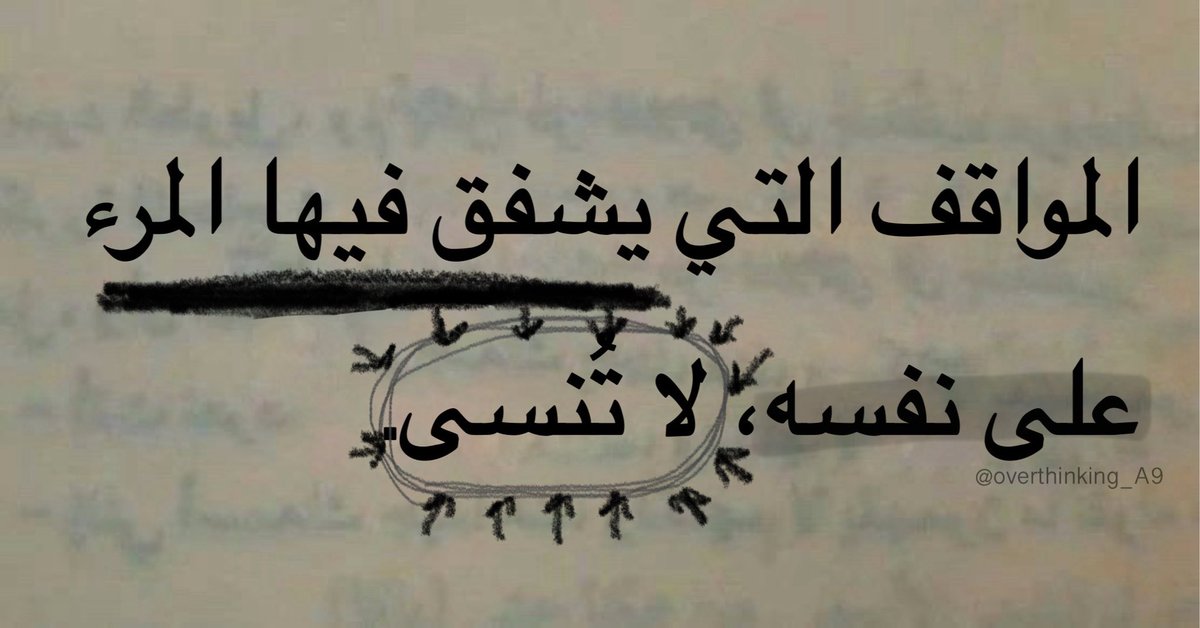 المواقف التي يشفق فيها المرء
على نفسه، لا تُنسى.
@overthinking_A9